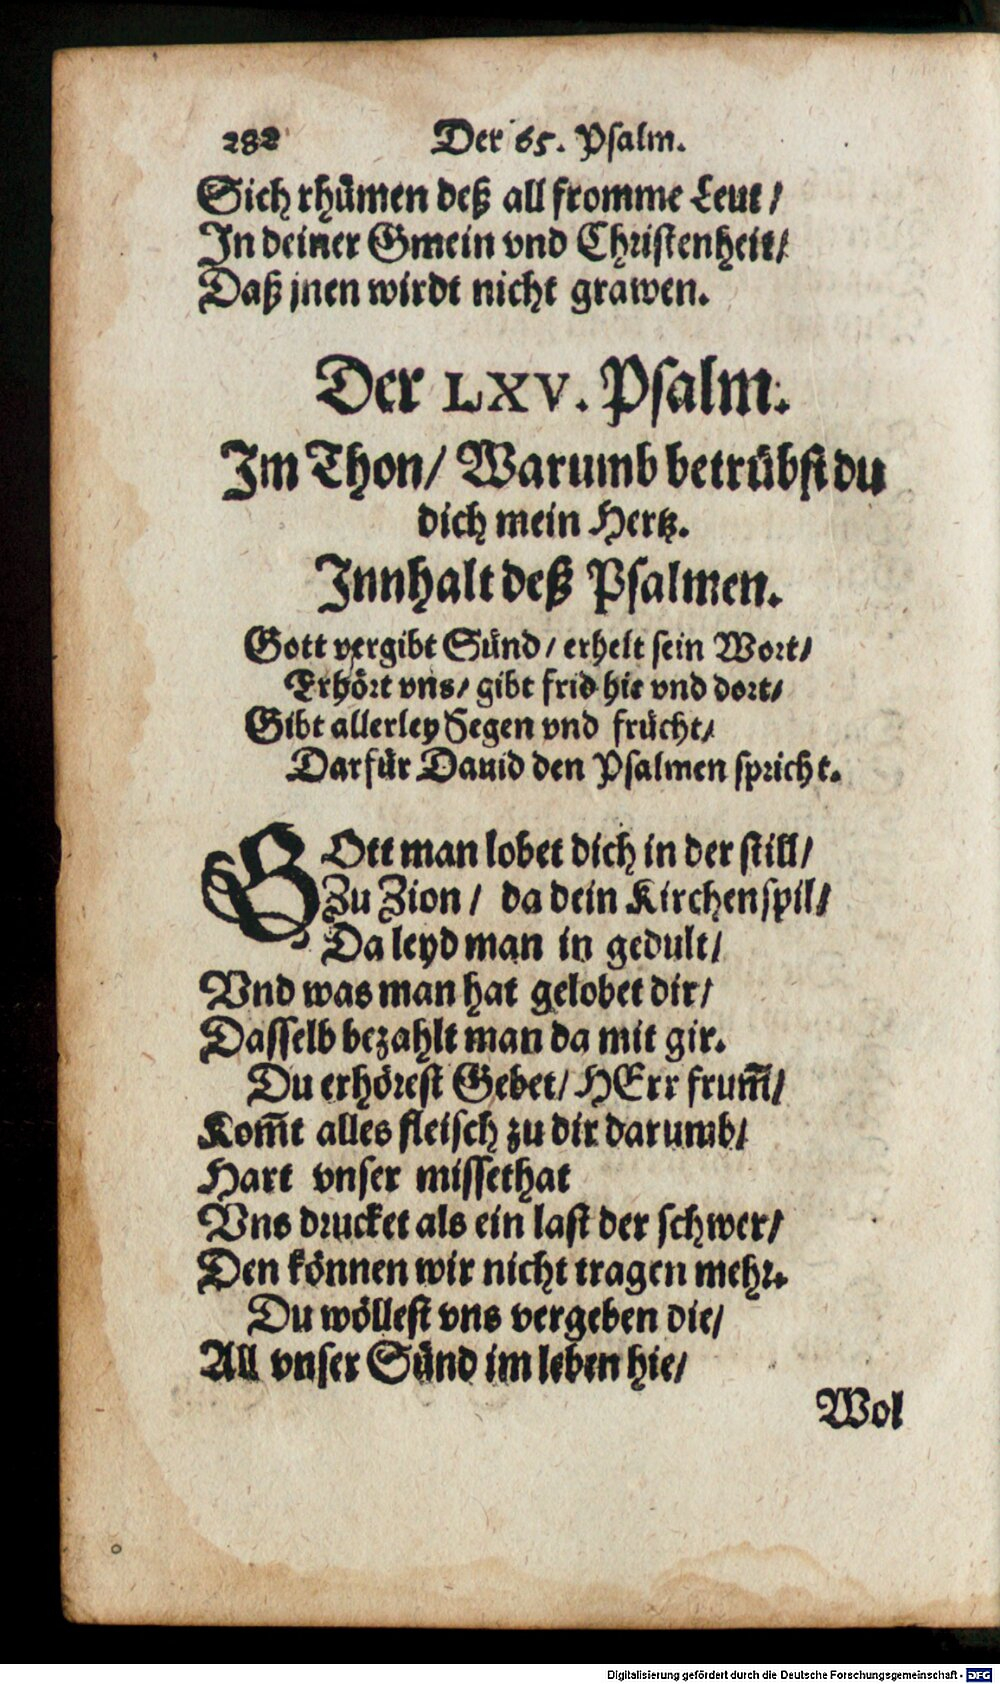 282 Der 65. Psalm.
Sich rhümen deß all fromme Leut /
In deiner Gmein vnd Christenheit /
Daß jnen wirdt nicht grawen.
Der LXV. Psalm.
Im Thon / Warumb betrübst du
dich mein Hertz.
Innhalt deß Psalmen.
Gott vergibt Sünd / erhelt sein Wort /
Erhört vns / gibt frid hie vnd dort /
Gibt allerley Segen vnd frücht /
Darfür Dauid den Psalmen spricht.
GOtt man lobet dich in der still /
Zu Zion / da dein Kirchenspil /
Da leyd man in gedult /
Vnd was man hat gelobet dir /
Dasselb bezahlt man da mit gir.
Du erhörest Gebet / HErr frum̃ /
Kom̃t alles fleisch zu dir darumb /
Hart vnser missethat
Vns drucket als ein last der schwer /
Den können wir nicht tragen mehr.
Du wöllest vns vergeben die /
All vnser Sünd im leben hie /
Wol
Digitalisierung gefördert durch die Deutsche Forschungsgemeinschaft - DFG